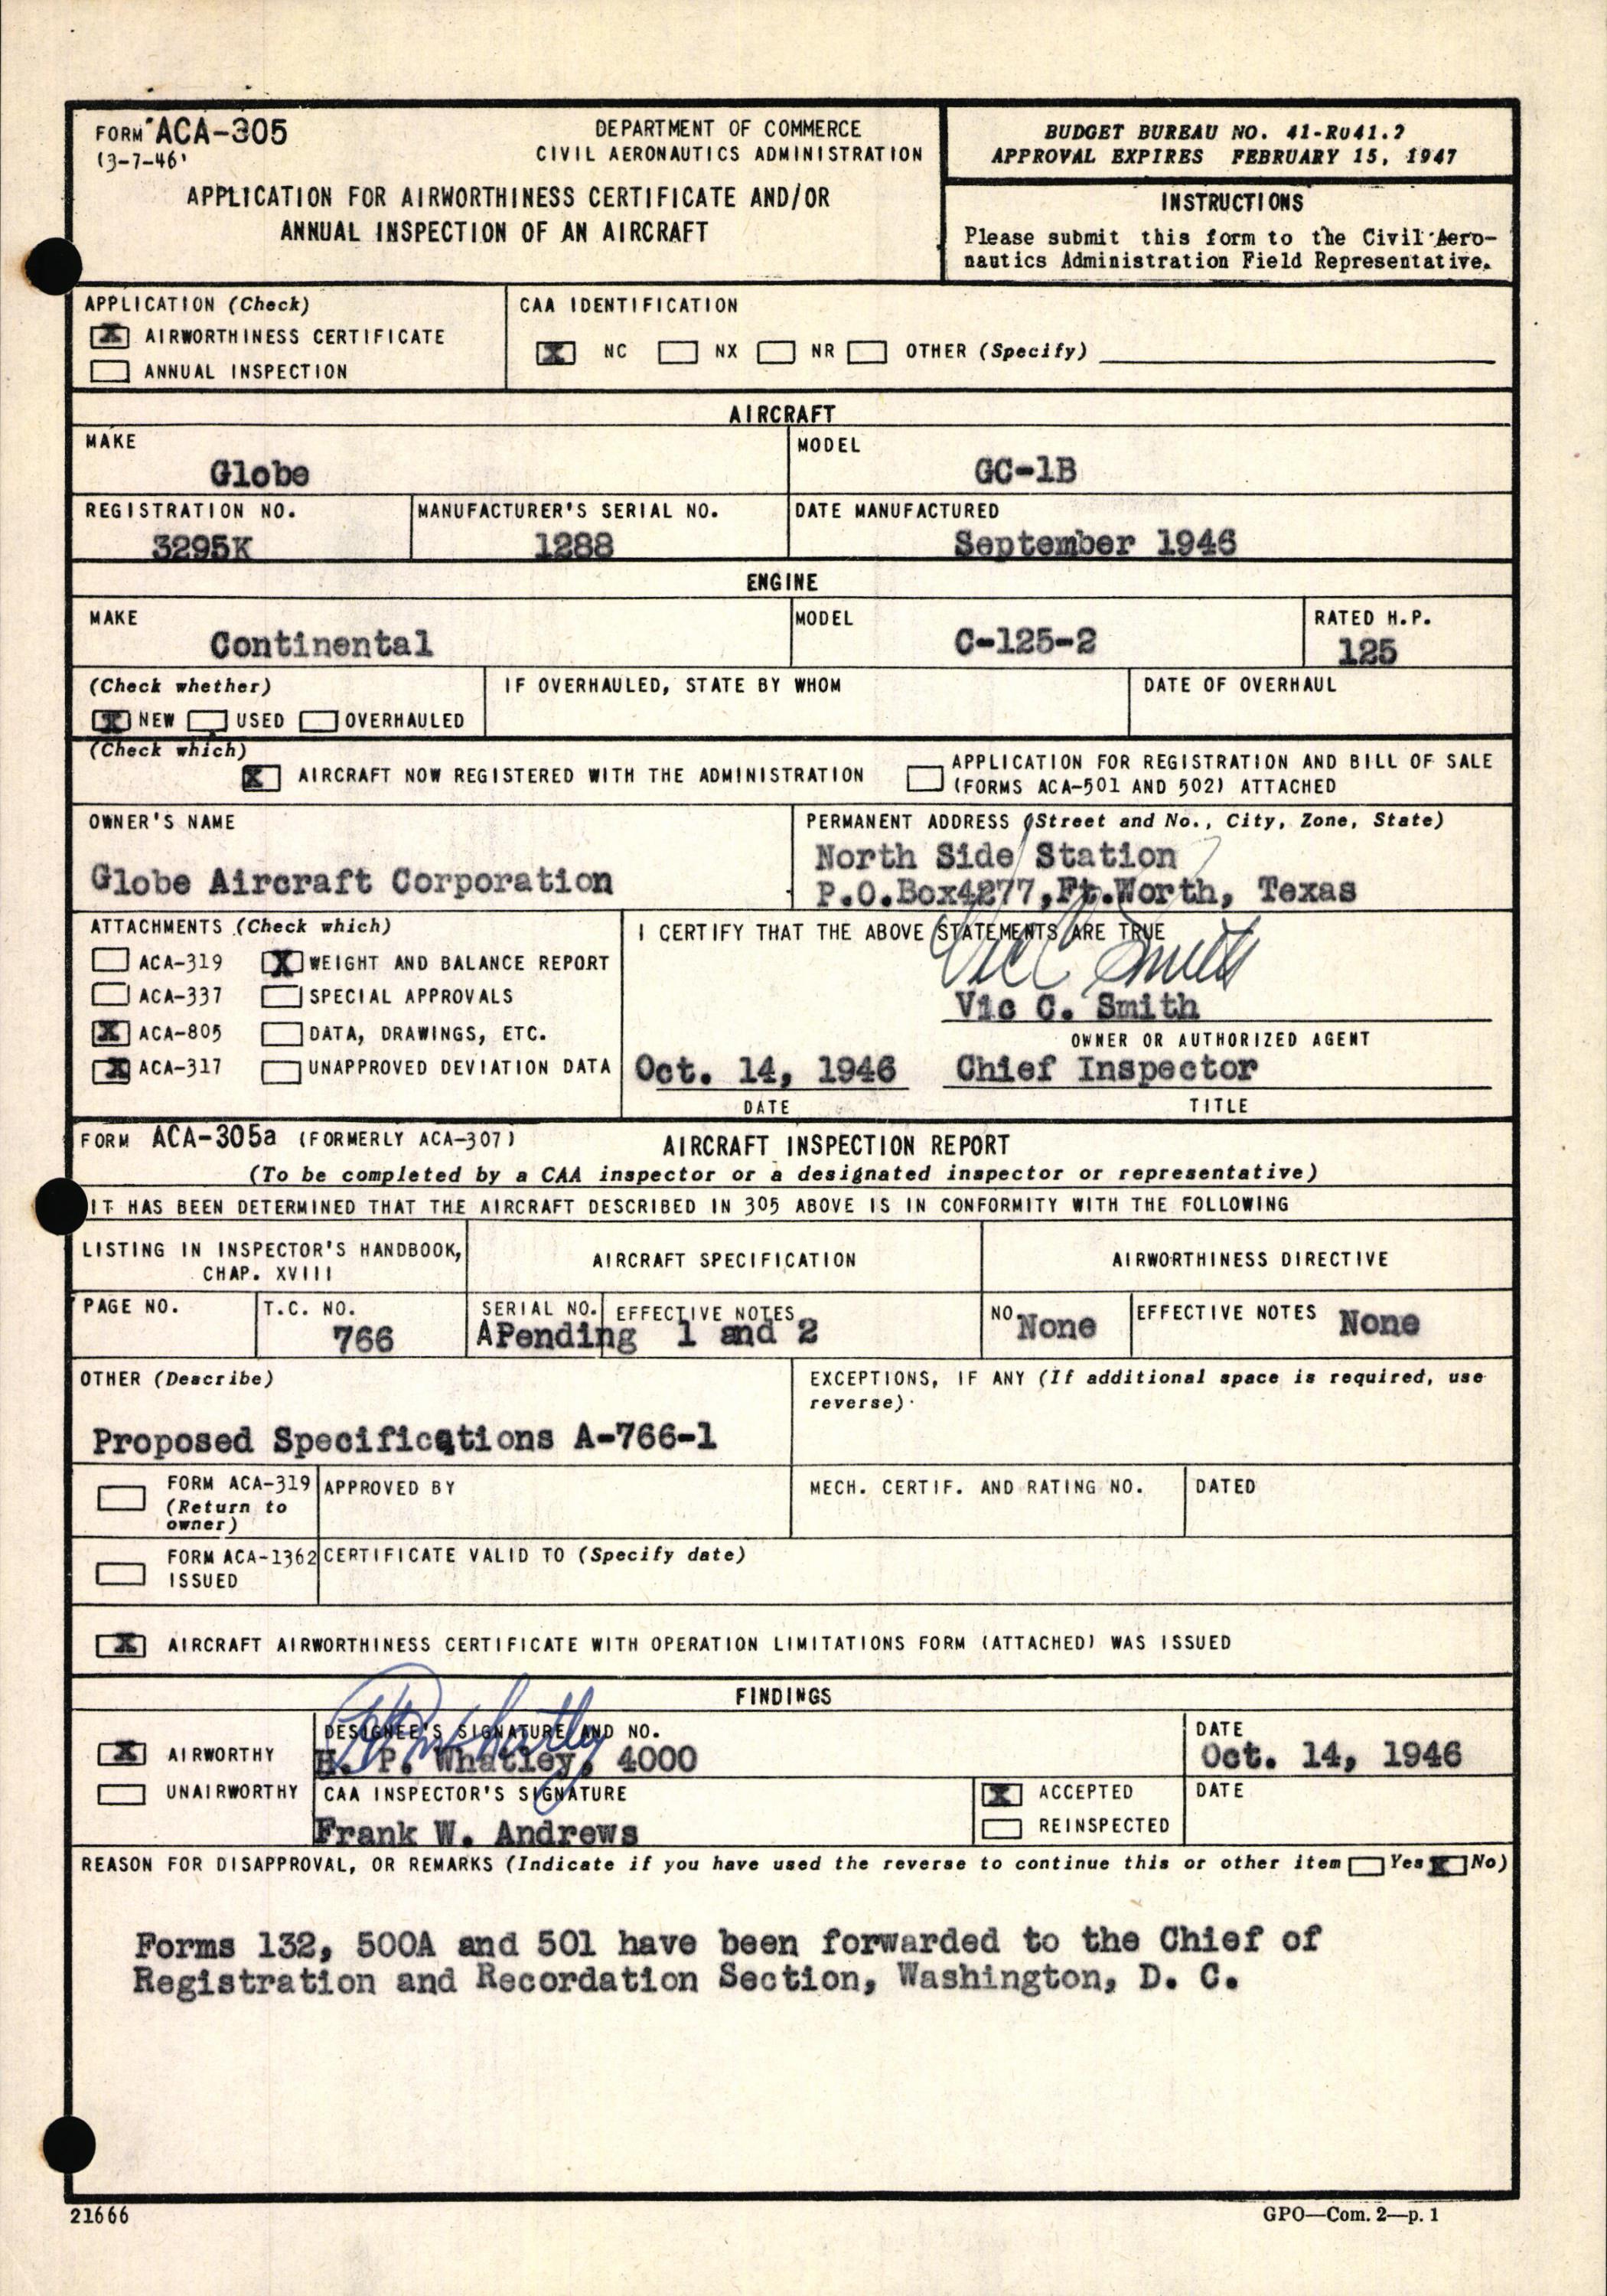 FORM ACA-305
(3-7-46)
DEPARTMENT OF COMMERCE
CIVIL AERONAUTICS ADMINISTRATION
APPLICATION FOR AIRWORTHINESS CERTIFICATE AND/OR
ANNUAL INSPECTION OF AN AIRCRAFT
BUDGET BUREAU NO. 41-R041.2
APPROVAL EXPIRES FEBRUARY 15, 1947
INSTRUCTIONS
Please submit this form to the Civil Aero-
nautics Administration Field Representative.
APPLICATION (Check)
X AIRWORTHINESS CERTIFICATE
ANNUAL INSPECTION
CAA IDENTIFICATION
X NC NX NR OTHER (Specify)
AIRCRAFT
MAKE
Globe
MODEL
GC-1B
REGISTRATION NO.
3295K
MANUFACTURER'S SERIAL NO.
1288
DATE MANUFACTURED
September 1946
ENGINE
MAKE
Continental
MODEL
C-125-2
RATED H.P.
125
(Check whether)
X NEW USED OVERHAULED
IF OVERHAULED, STATE BY WHOM
DATE OF OVERHAUL
(Check which)
X AIRCRAFT NOW REGISTERED WITH THE ADMINISTRATION
APPLICATION FOR REGISTRATION AND BILL OF SALE
(FORMS ACA-501 AND 502) ATTACHED
OWNER'S NAME
Globe Aircraft Corporation
PERMANENT ADDRESS (Street and No., City, Zone, State)
North Side Station
P.O.Box4277,Ft.Worth, Texas
ATTACHMENTS (Check which)
ACA-319 X WEIGHT AND BALANCE REPORT
ACA-337 SPECIAL APPROVALS
X ACA-805 DATA, DRAWINGS, ETC.
X ACA-317 UNAPPROVED DEVIATION DATA
I CERTIFY THAT THE ABOVE STATEMENTS ARE TRUE
Vic C Smith
Vic C. Smith
OWNER OR AUTHORIZED AGENT
Oct. 14, 1946 Chief Inspector
DATE TITLE
FORM ACA-305a (FORMERLY ACA-307) AIRCRAFT INSPECTION REPORT
(To be completed by a CAA inspector or a designated inspector or representative)
IT HAS BEEN DETERMINED THAT THE AIRCRAFT DESCRIBED IN 305 ABOVE IS IN CONFORMITY WITH THE FOLLOWING
LISTING IN INSPECTOR'S HANDBOOK,
CHAP. XVIII
AIRCRAFT SPECIFICATION
AIRWORTHINESS DIRECTIVE
PAGE NO.
T.C. NO.
766
SERIAL NO. EFFECTIVE NOTES
APending 1 and 2
NO. None
EFFECTIVE NOTES None
OTHER (Describe)
Proposed Specifications A-766-1
EXCEPTIONS, IF ANY (If additional space is required, use
reverse).
FORM ACA-319
(Return to
owner)
APPROVED BY
MECH. CERTIF. AND RATING NO.
DATED
FORM ACA-1362
ISSUED
CERTIFICATE VALID TO (Specify date)
X AIRCRAFT AIRWORTHINESS CERTIFICATE WITH OPERATION LIMITATIONS FORM (ATTACHED) WAS ISSUED
FINDINGS
X AIRWORTHY
UNAIRWORTHY
DESIGNEE'S SIGNATURE AND NO.
H P Whatley
H. P. Whatley, 4000
DATE
Oct. 14, 1946
CAA INSPECTOR'S SIGNATURE
Frank W. Andrews
X ACCEPTED
REINSPECTED
DATE
REASON FOR DISAPPROVAL, OR REMARKS (Indicate if you have used the reverse to continue this or other item Yes X No)
Forms 132, 500A and 501 have been forwarded to the Chief of
Registration and Recordation Section, Washington, D. C.
21666
GPO—Com. 2—p. 1